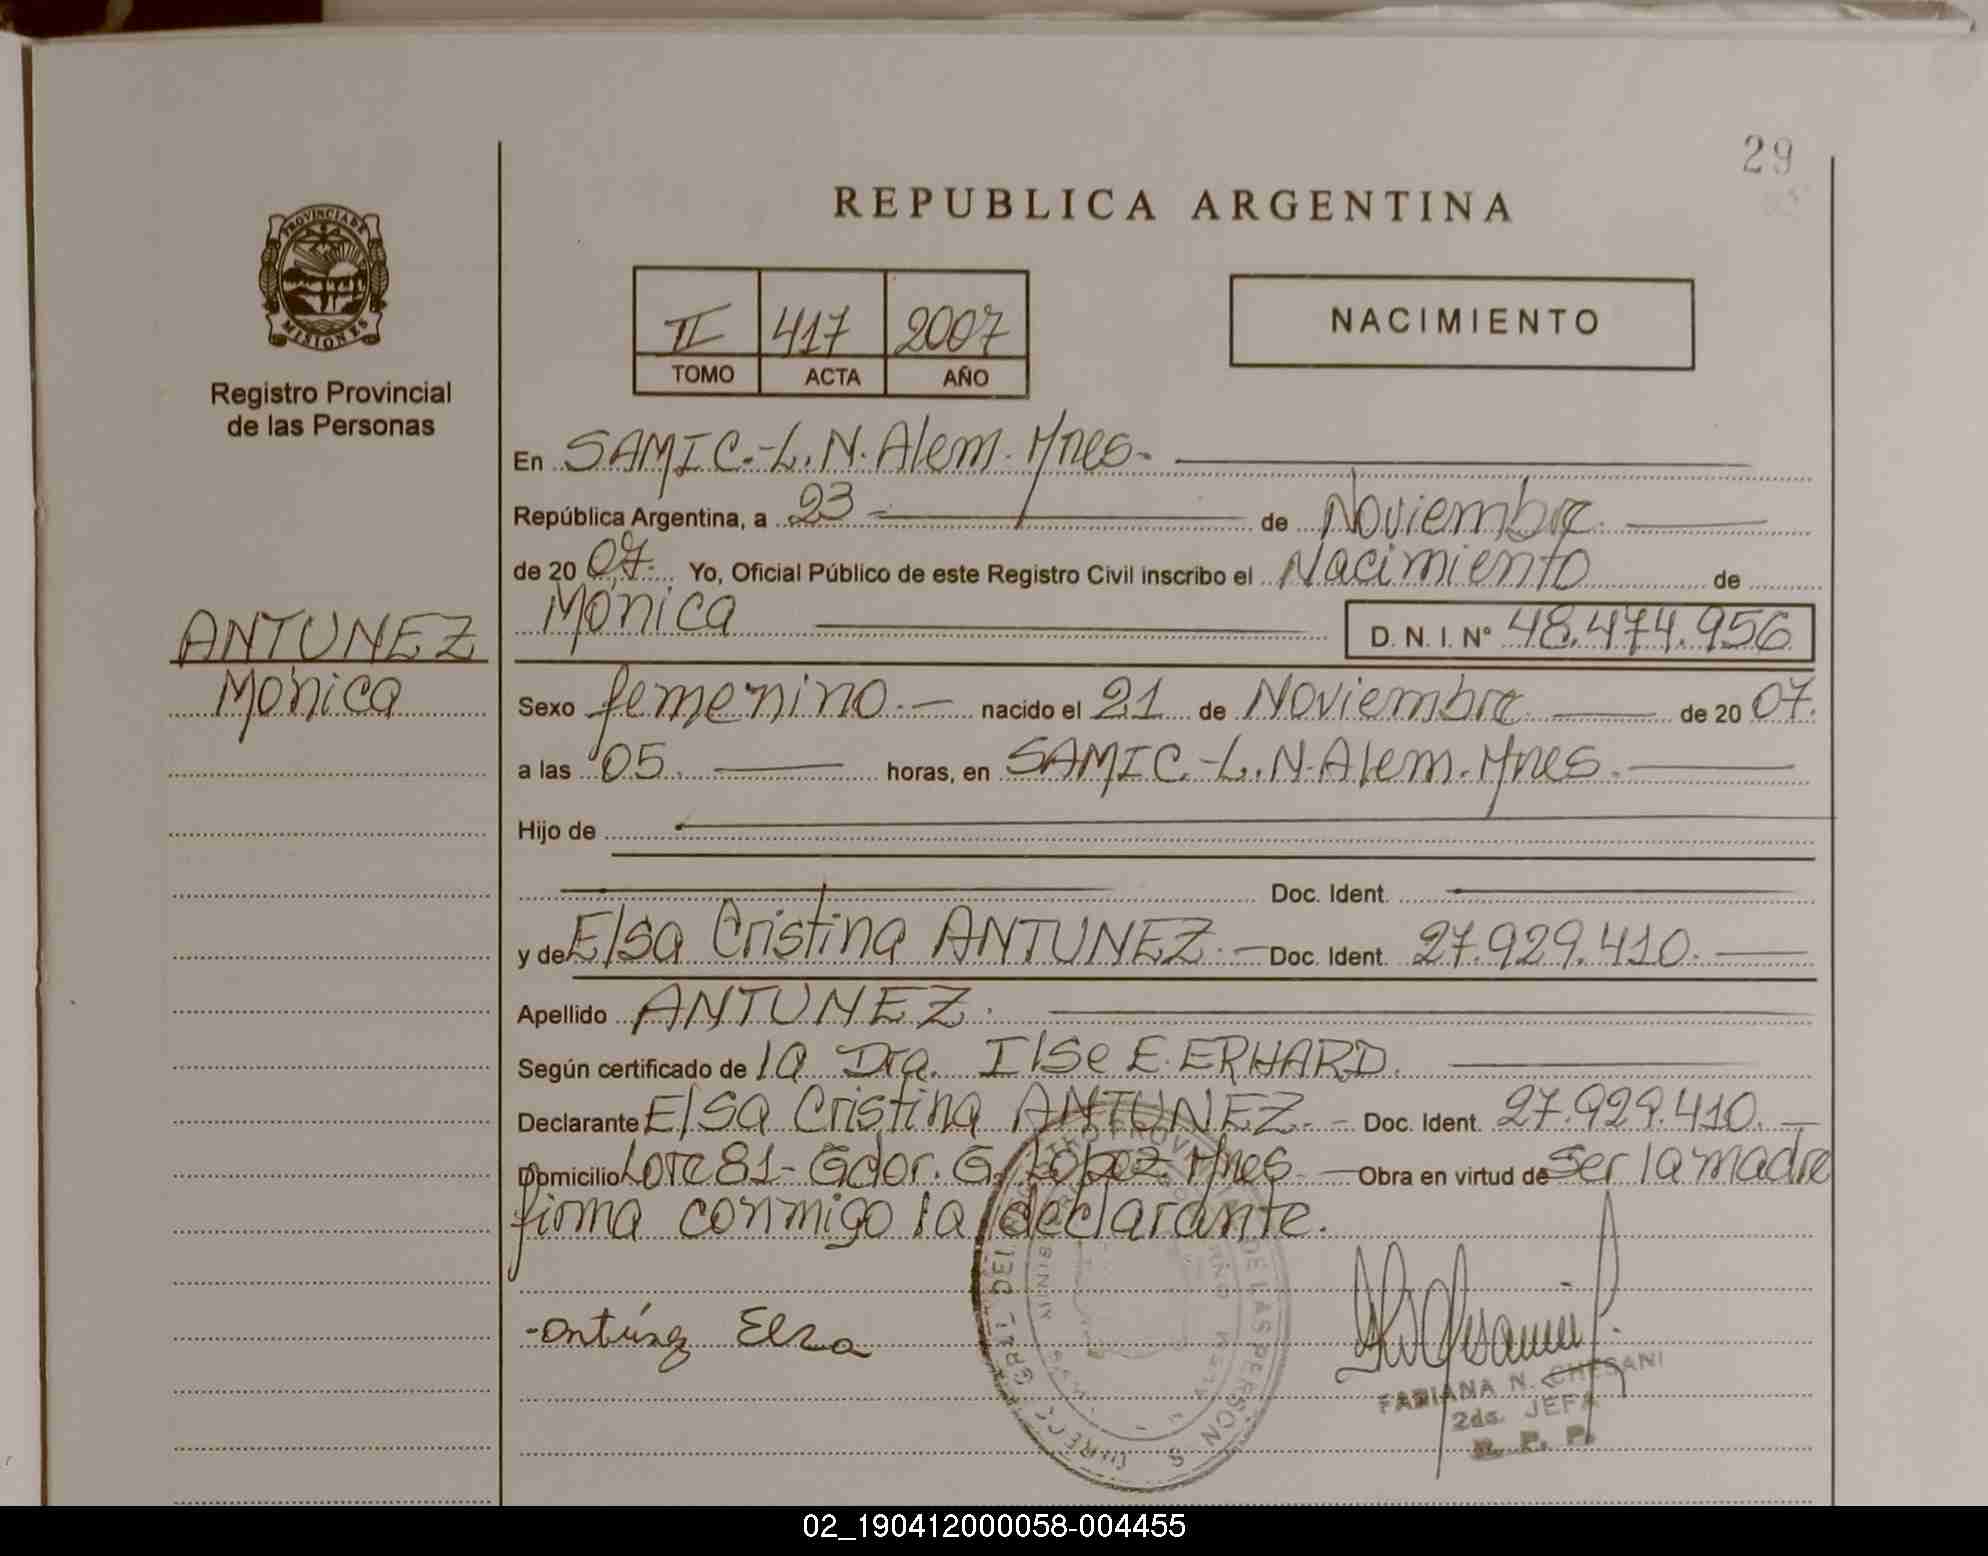 29
REPUBLICA ARGENTINA
PROVINCIA DE MISIONES
Registro Provincial
de las Personas
II 417 2007
TOMO ACTA AÑO
NACIMIENTO
En SAMIC.-L.N.Alem. Mnes.-
República Argentina, a 23 de Noviembre.
de 2007. Yo, Oficial Público de este Registro Civil inscribo el Nacimiento de
Mónica D. N. I. N° 48.474.956
ANTUNEZ
Mónica
Sexo femenino.- nacido el 21 de Noviembre de 2007.
a las 05. horas, en SAMIC.-L.N.Alem.Mnes.
Hijo de
Doc. Ident.
y de Elsa Cristina ANTUNEZ.- Doc. Ident. 27.929.410.
Apellido ANTUNEZ.
Según certificado de la Dra. Ilse E. ERHARD.
Declarante Elsa Cristina ANTUNEZ.- Doc. Ident. 27.929.410.-
Domicilio Lote 81- Gdor. G. López Mnes.- Obra en virtud de ser la madre
firma conmigo la declarante.
-Antúnez Elza
FABIANA N. CHESANI
2da. JEFA
R. P. P.
02_190412000058-004455